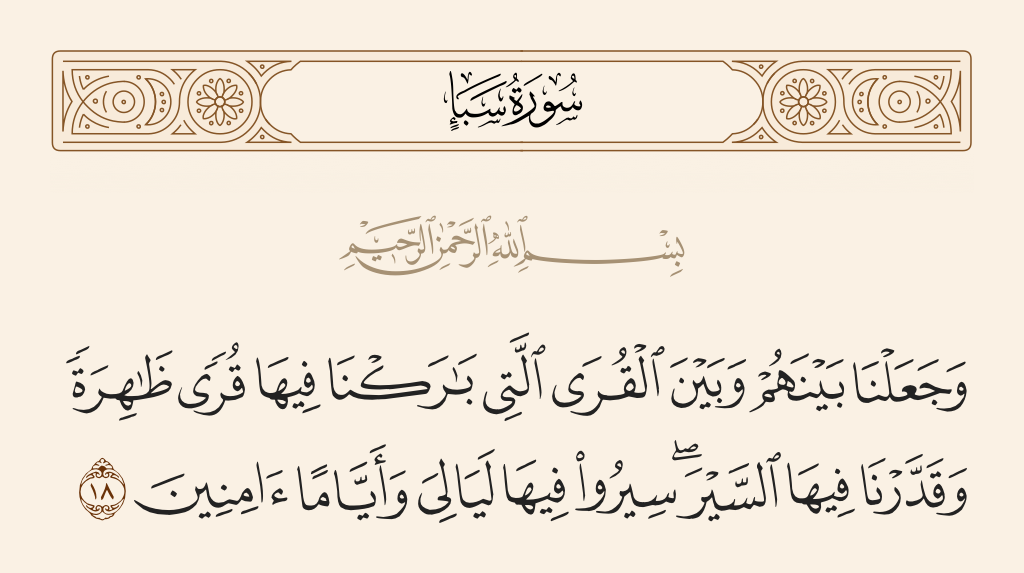 سُورَةُ سَبَإٍ
بِسْمِ ٱللَّهِ ٱلرَّحْمَٰنِ ٱلرَّحِيمِ
وَجَعَلْنَا بَيْنَهُمْ وَبَيْنَ ٱلْقُرَى ٱلَّتِى بَٰرَكْنَا فِيهَا قُرًى ظَٰهِرَةً
وَقَدَّرْنَا فِيهَا ٱلسَّيْرَ ۖ سِيرُوا۟ فِيهَا لَيَالِىَ وَأَيَّامًا ءَامِنِينَ ١٨